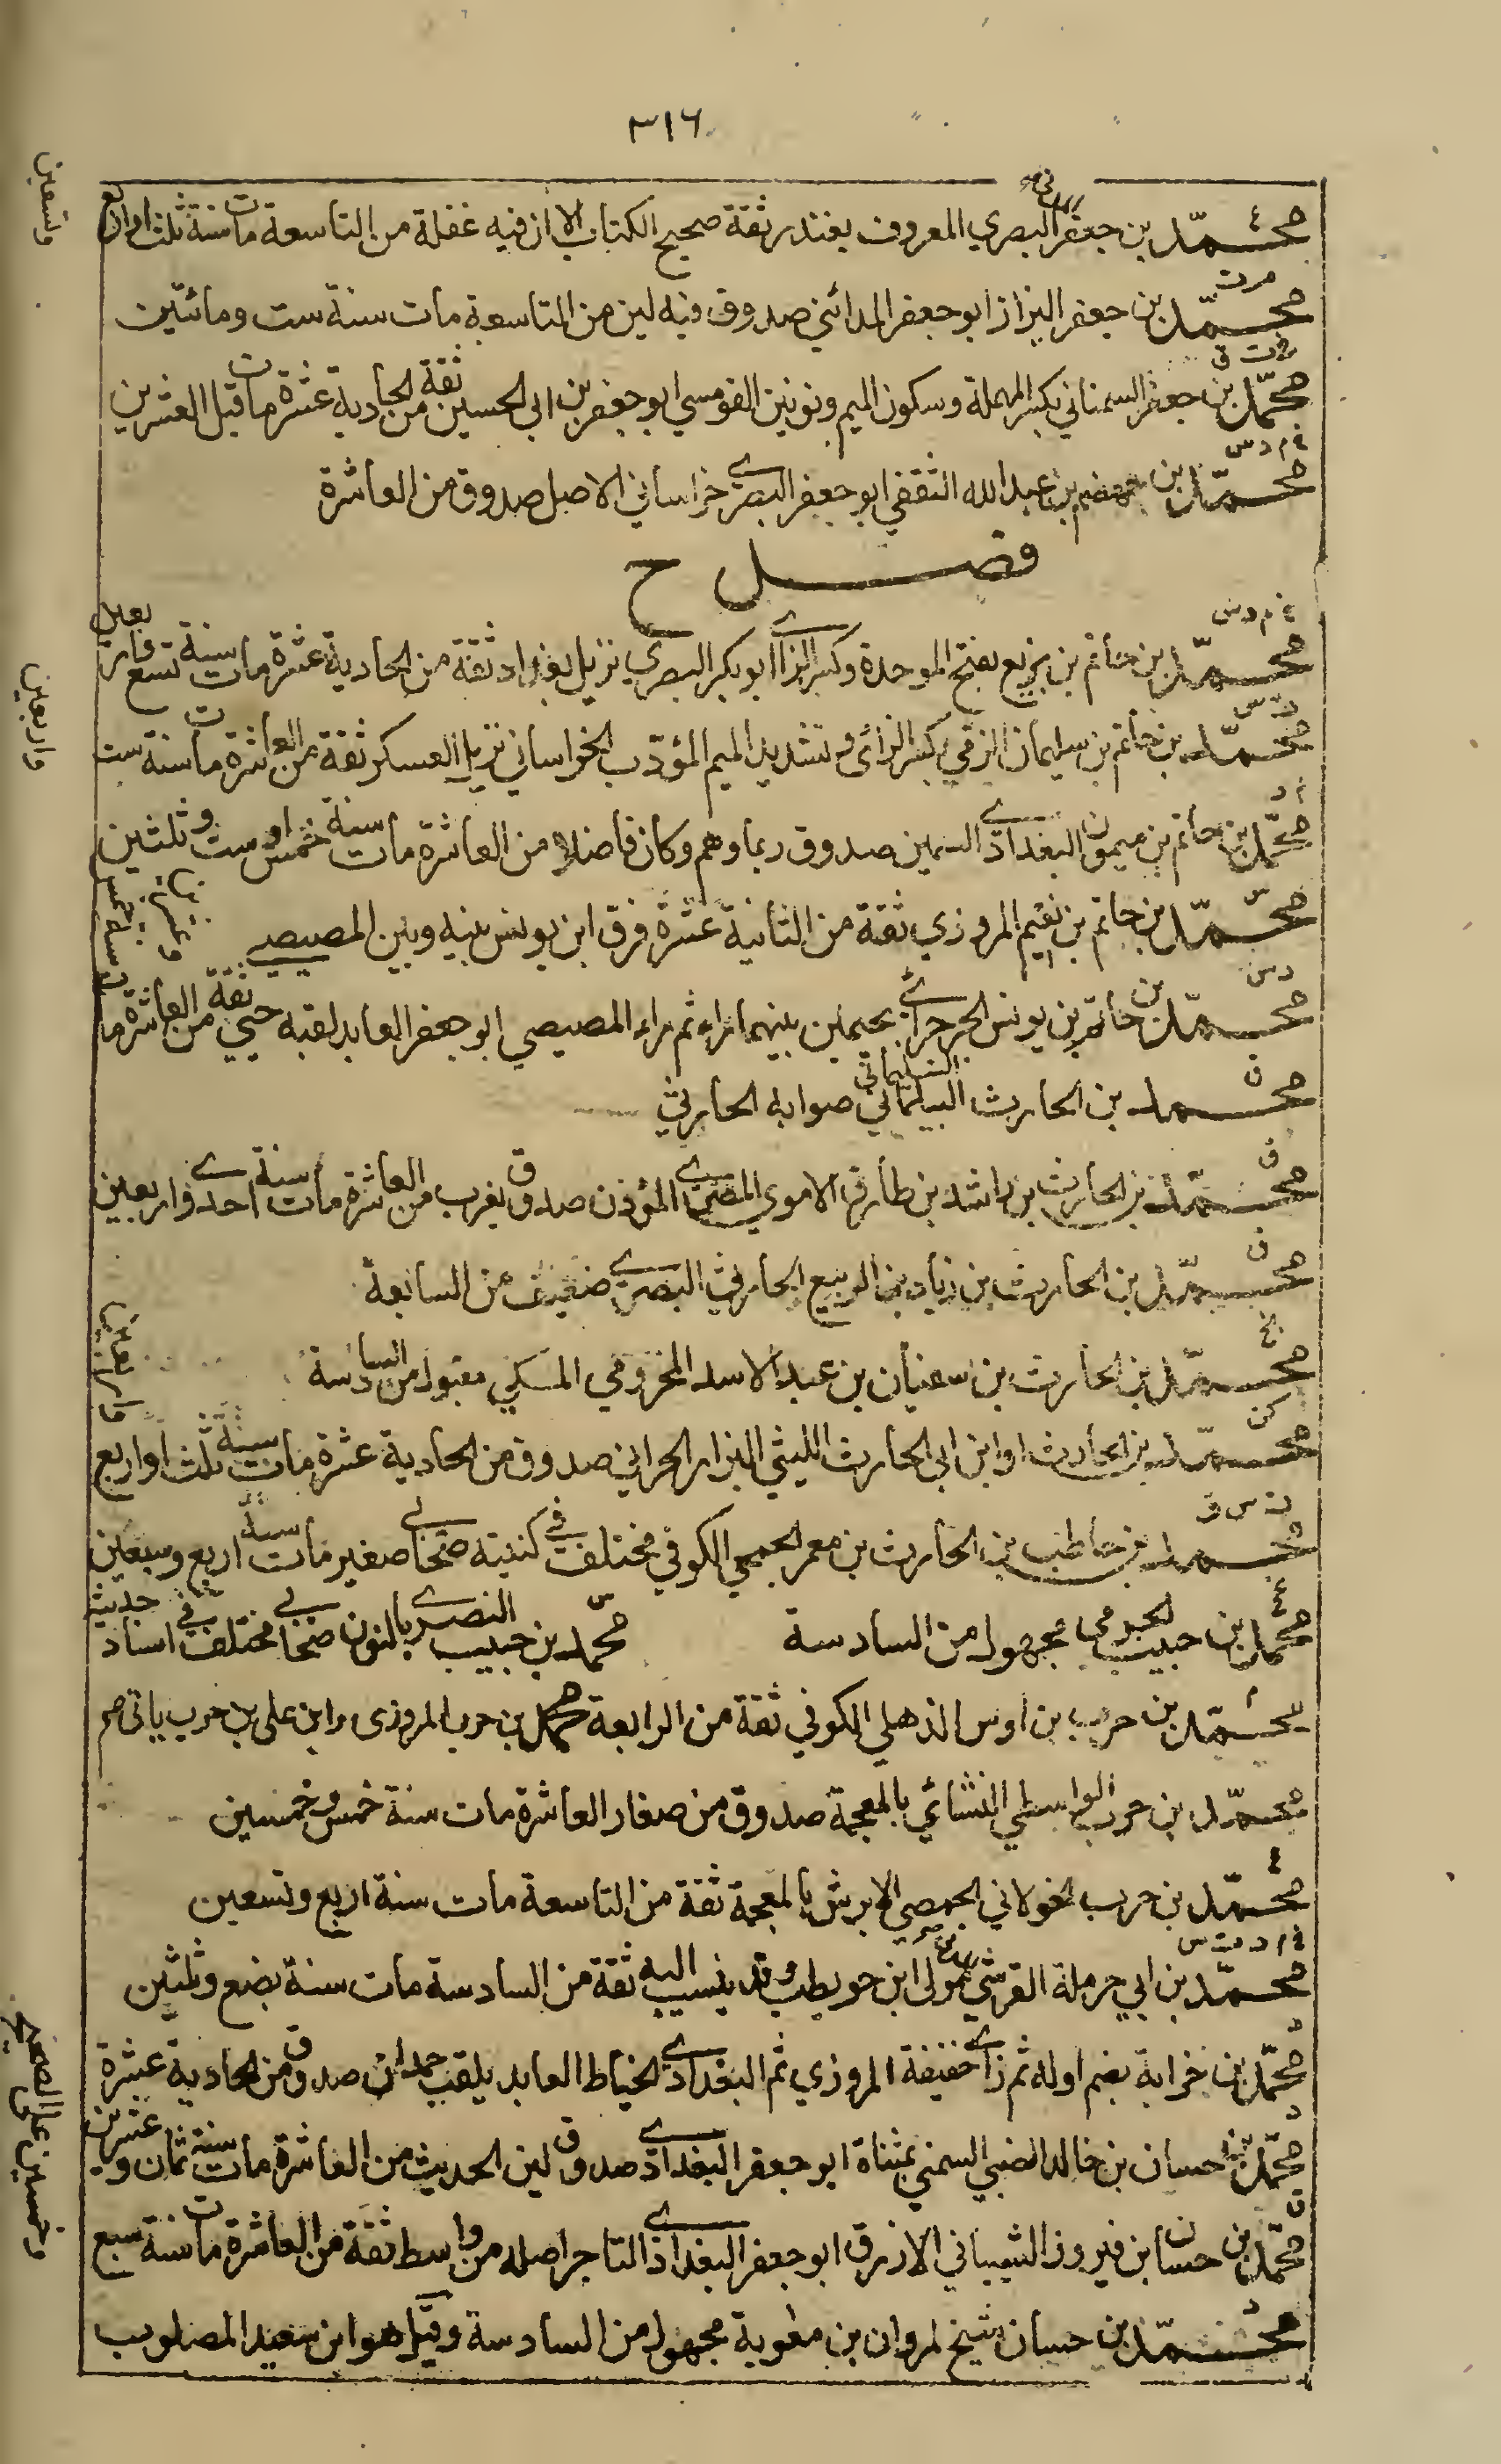 ٣١٦
ع
محمد بن جعفر البصري المعروف بغندر ثقة صحيح الكتاب الا ان فيه غفلة من التاسعة مات سنة ثلث او اربع
وتسعين
م ت
محمد بن جعفر البزاز ابو جعفر المدائني صدوق فيه لين من التاسعة مات سنة ست ومائتين
خ ت ق
محمد بن جعفر السمناني بكسر المهملة وسكون الميم ونونين القومسي ابو جعفر بن ابي الحسين ثقة من الحادية عشرة مات قبل العشرين
محمد بن جهضم بن عبد الله الثقفي ابو جعفر البصري خراساني الاصل صدوق من العاشرة
فصل ح
محمد بن حاتم بن بزيع بفتح الموحدة وكسر الزاي ابو بكر البصري نزيل بغداد ثقة من الحادية عشرة مات سنة تسع واربعين
ت س
محمد بن حاتم بن سليمان الزمي بكسر الزائ وتشديد الميم المؤدب الخراساني نزيل العسكر ثقة من العاشرة مات سنة ست
واربعين
م د
محمد بن حاتم بن ميمون البغدادي السمين صدوق ربما وهم وكان فاضلا من العاشرة مات سنة خمس او ست وثلثين
س
محمد بن حاتم بن نعيم المروزي ثقة من الثانية عشرة فرق ابن يونس بينه وبين المصيصي
د س
محمد بن حاتم بن يونس الجرجرائي بجيمين بينهما راء ثم راء المصيصي ابو جعفر العابد لقبه حبي ثقة من العاشرة مات سنة خمس وعشرين
ق
محمد بن الحارث البيلماني صوابه الحارثي
ق
محمد بن الحارث بن راشد بن طارق الاموي المصري المؤذن صدوق يغرب من العاشرة مات سنة احدى واربعين
ق
محمد بن الحارث بن زياد بن الربيع الحارثي البصري ضعيف من السابعة
بخ
محمد بن الحارث بن سفيان بن عبد الاسد المخزومي المكي مقبول من السادسة
كن
محمد بن الحارث او ابن ابي الحارث الليثي البزار الحراني صدوق من الحادية عشرة مات سنة ثلث او اربع
واربعين
ت س ق
محمد بن حاطب بن الحارث بن معمر الجمحي الكوفي مختلف في كنيته صحابي صغير مات سنة اربع وسبعين
محمد بن حبيب الجرمي مجهول من السادسة محمد بن حبيب النصري بالنون صحابي مختلف في اسناد حديثه
م
محمد بن حرب بن اوس الذهلي الكوفي ثقة من الرابعة محمد بن حرب المروزي ابن علي بن حرب ياتي
محمد بن حرب الواسطي النشائي بالمعجمة صدوق من صغار العاشرة مات سنة خمس وخمسين
ع
محمد بن حرب الخولاني الحمصي الابرش بالمعجمة ثقة من التاسعة مات سنة اربع وتسعين
خ م د ت س
محمد بن ابي حرملة القرشي مولى ابن حويطب وقد ينسب اليه ثقة من السادسة مات سنة بضع وثلثين
محمد بن خزابة بضم اوله ثم زاي خفيفة المروزي ثم البغدادي الخياط العابد يلقب حمدان صدوق من الحادية عشرة
د
محمد بن حسان بن خالد الضبي السمتي بمثناة ابو جعفر البغدادي صدوق لين الحديث من العاشرة مات سنة ثمان وعشرين
ق
محمد بن حسان بن فيروز الشيباني الازرق ابو جعفر البغدادي التاجر اصله من واسط ثقة من العاشرة مات سنة سبع
وخمسين على الصحيح
د
محمد بن حسان شيخ لمروان بن معوية مجهول من السادسة وقيل هو ابن سعيد المصلوب